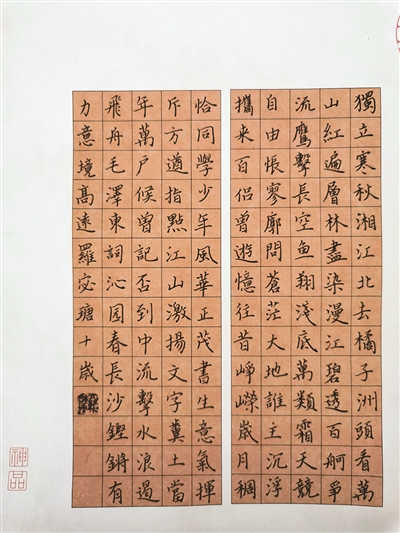 獨立寒秋湘江北去橘子洲頭看萬
山紅遍層林盡染漫江碧透百舸爭
流鷹擊長空鱼翔淺底萬類霜天競
自由悵寥廓問蒼茫大地誰主沉浮
攜来百侶曾遊憶往昔崢嶸歲月稠
恰同學少年風華正茂書生意氣揮
斥方遒指點江山激揚文字糞土當
年萬户候曾記否到中流擊水浪遏
飛舟毛澤東詞沁园春長沙鏗鏘有
力意境高遠羅宓瑭十歲
神品